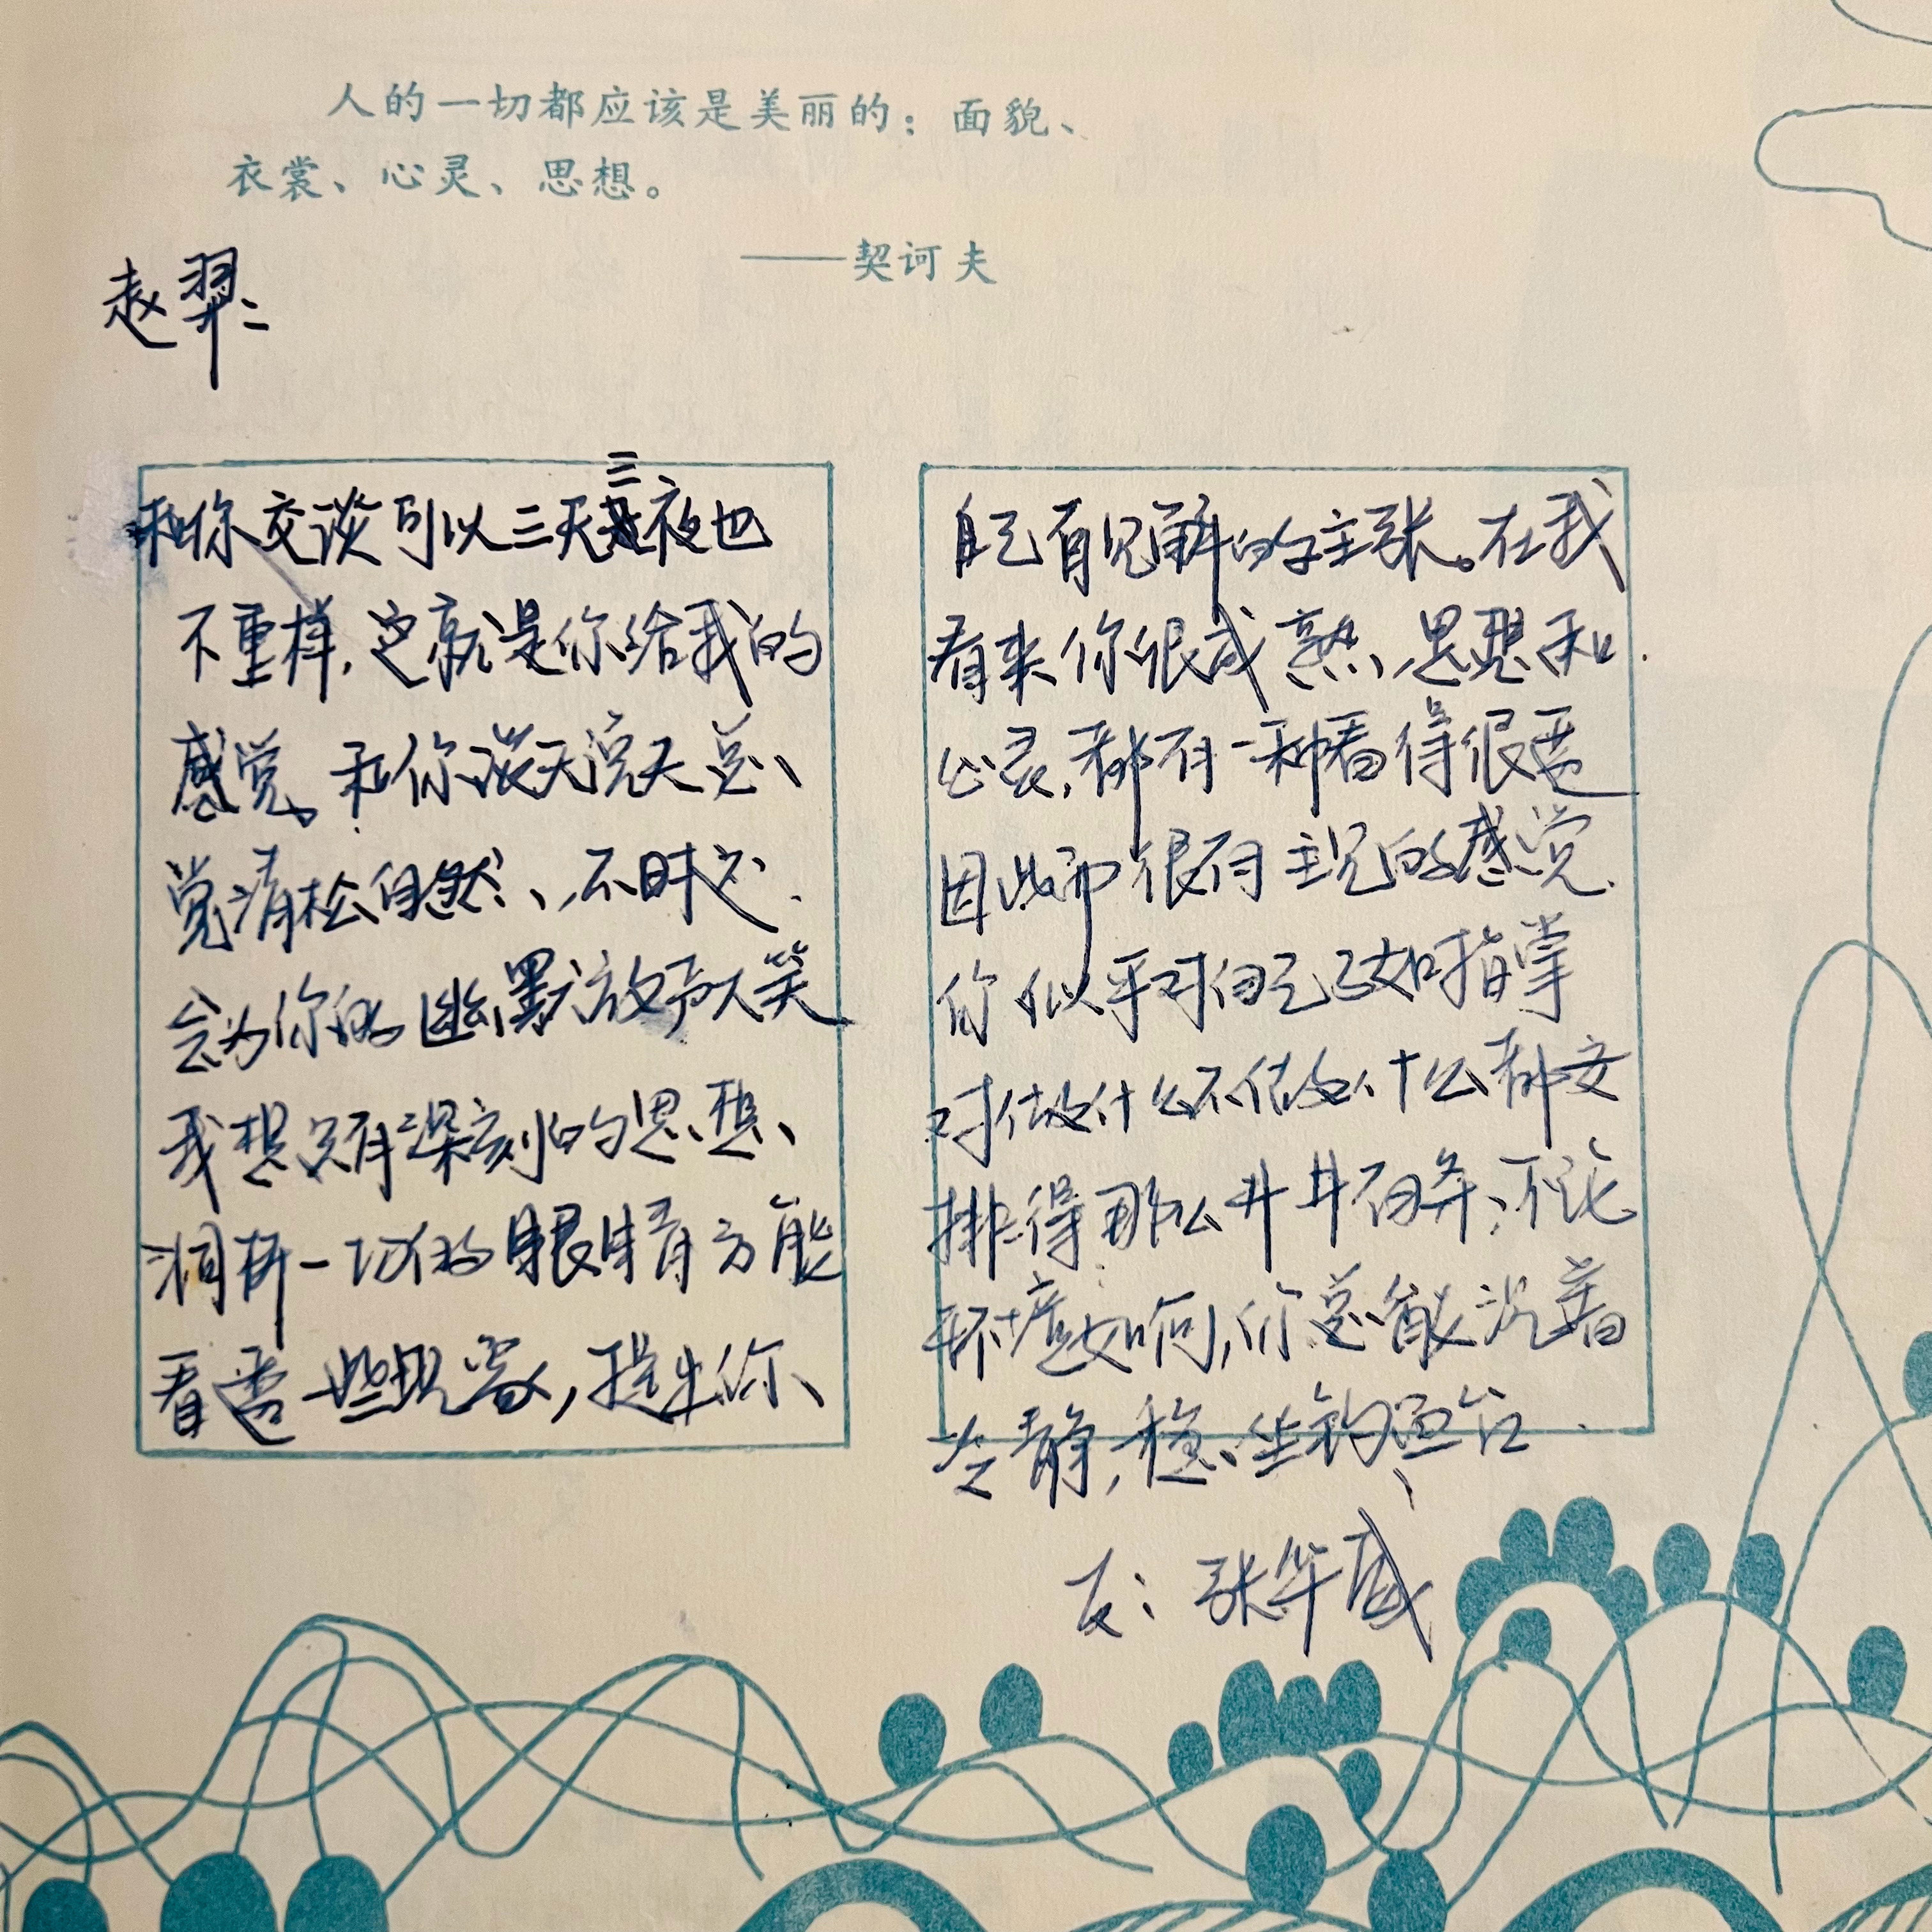 人的一切都应该是美丽的：面貌、
衣裳、心灵、思想。
——契诃夫
赵羿：
和你交谈可以三天三夜也
不重样，这就是你给我的
感觉。和你谈天说天总、
觉清松自然、，不时地
会为你的幽默放声大笑
我想只有深刻的思想、
洞析一切的眼睛方能
看透一些现象，提出你、
自己有见解的主张。在我
看来你很成熟、思想和
心灵，都有一种看得很透
因此而很有主见的感觉
你似乎对自己了如指掌
对做什么不做什么都安
排得那么井井有条；不论
环境如何，你总能沉着
冷静，稳坐钓鱼台
友：张华